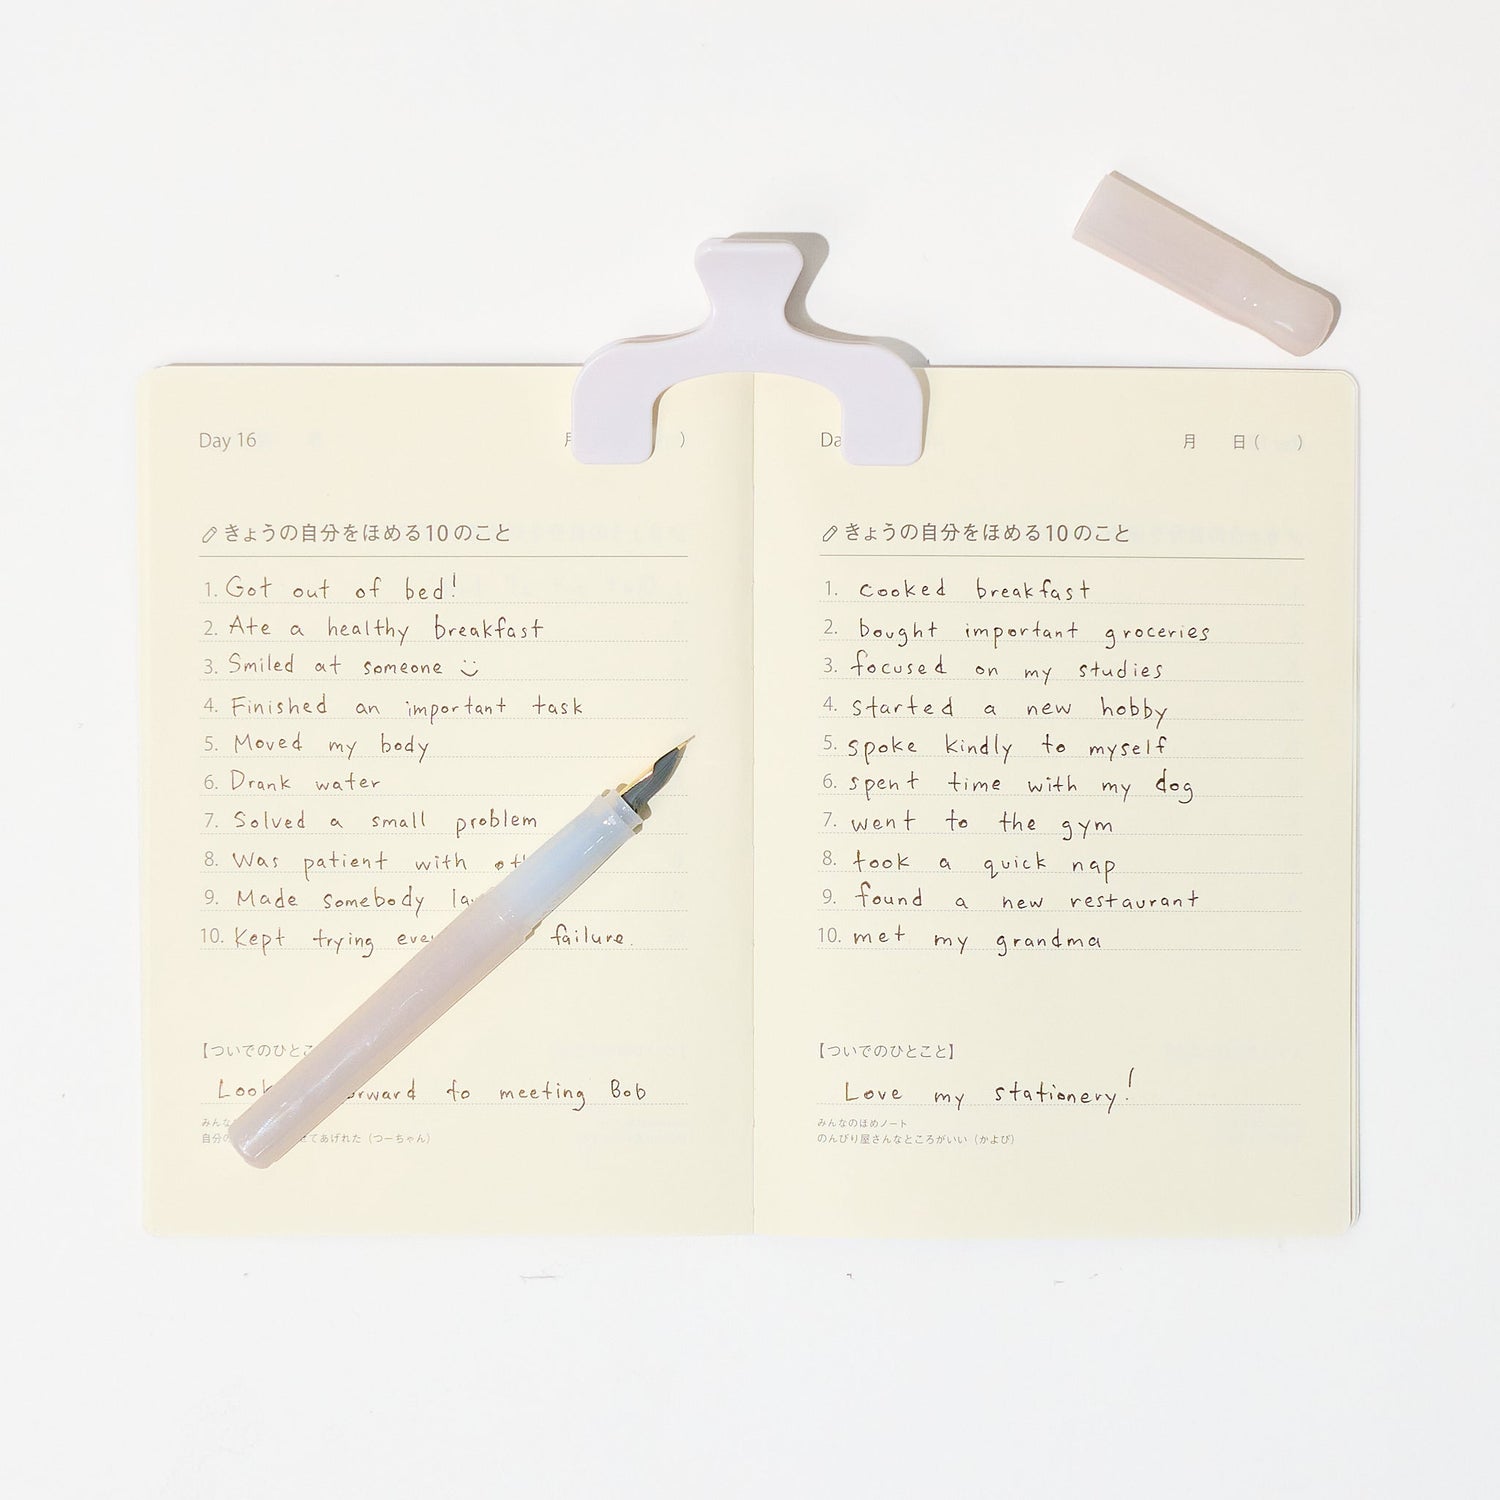 Day 16
月 )
きょうの自分をほめる10のこと
1. Got out of bed!
2. Ate a healthy breakfast
3. Smiled at someone
4. Finished an important task
5. Moved my body
6. Drank water
7. Solved a small problem
8. Was patient with
9. Made somebody
10. Kept trying failure.
【ついでのひとこ
to meeting Bob
みんな
自分 てあげれた（つーちゃん）
月 日 ( )
きょうの自分をほめる10のこと
1. cooked breakfast
2. bought important groceries
3. focused on my studies
4. started a new hobby
5. spoke kindly to myself
6. spent time with my dog
7. went to the gym
8. took a quick nap
9. found a new restaurant
10. met my grandma
【ついでのひとこと】
Love my stationery!
みんなのほめノート
のんびり屋さんなところがいい（かよぴ）